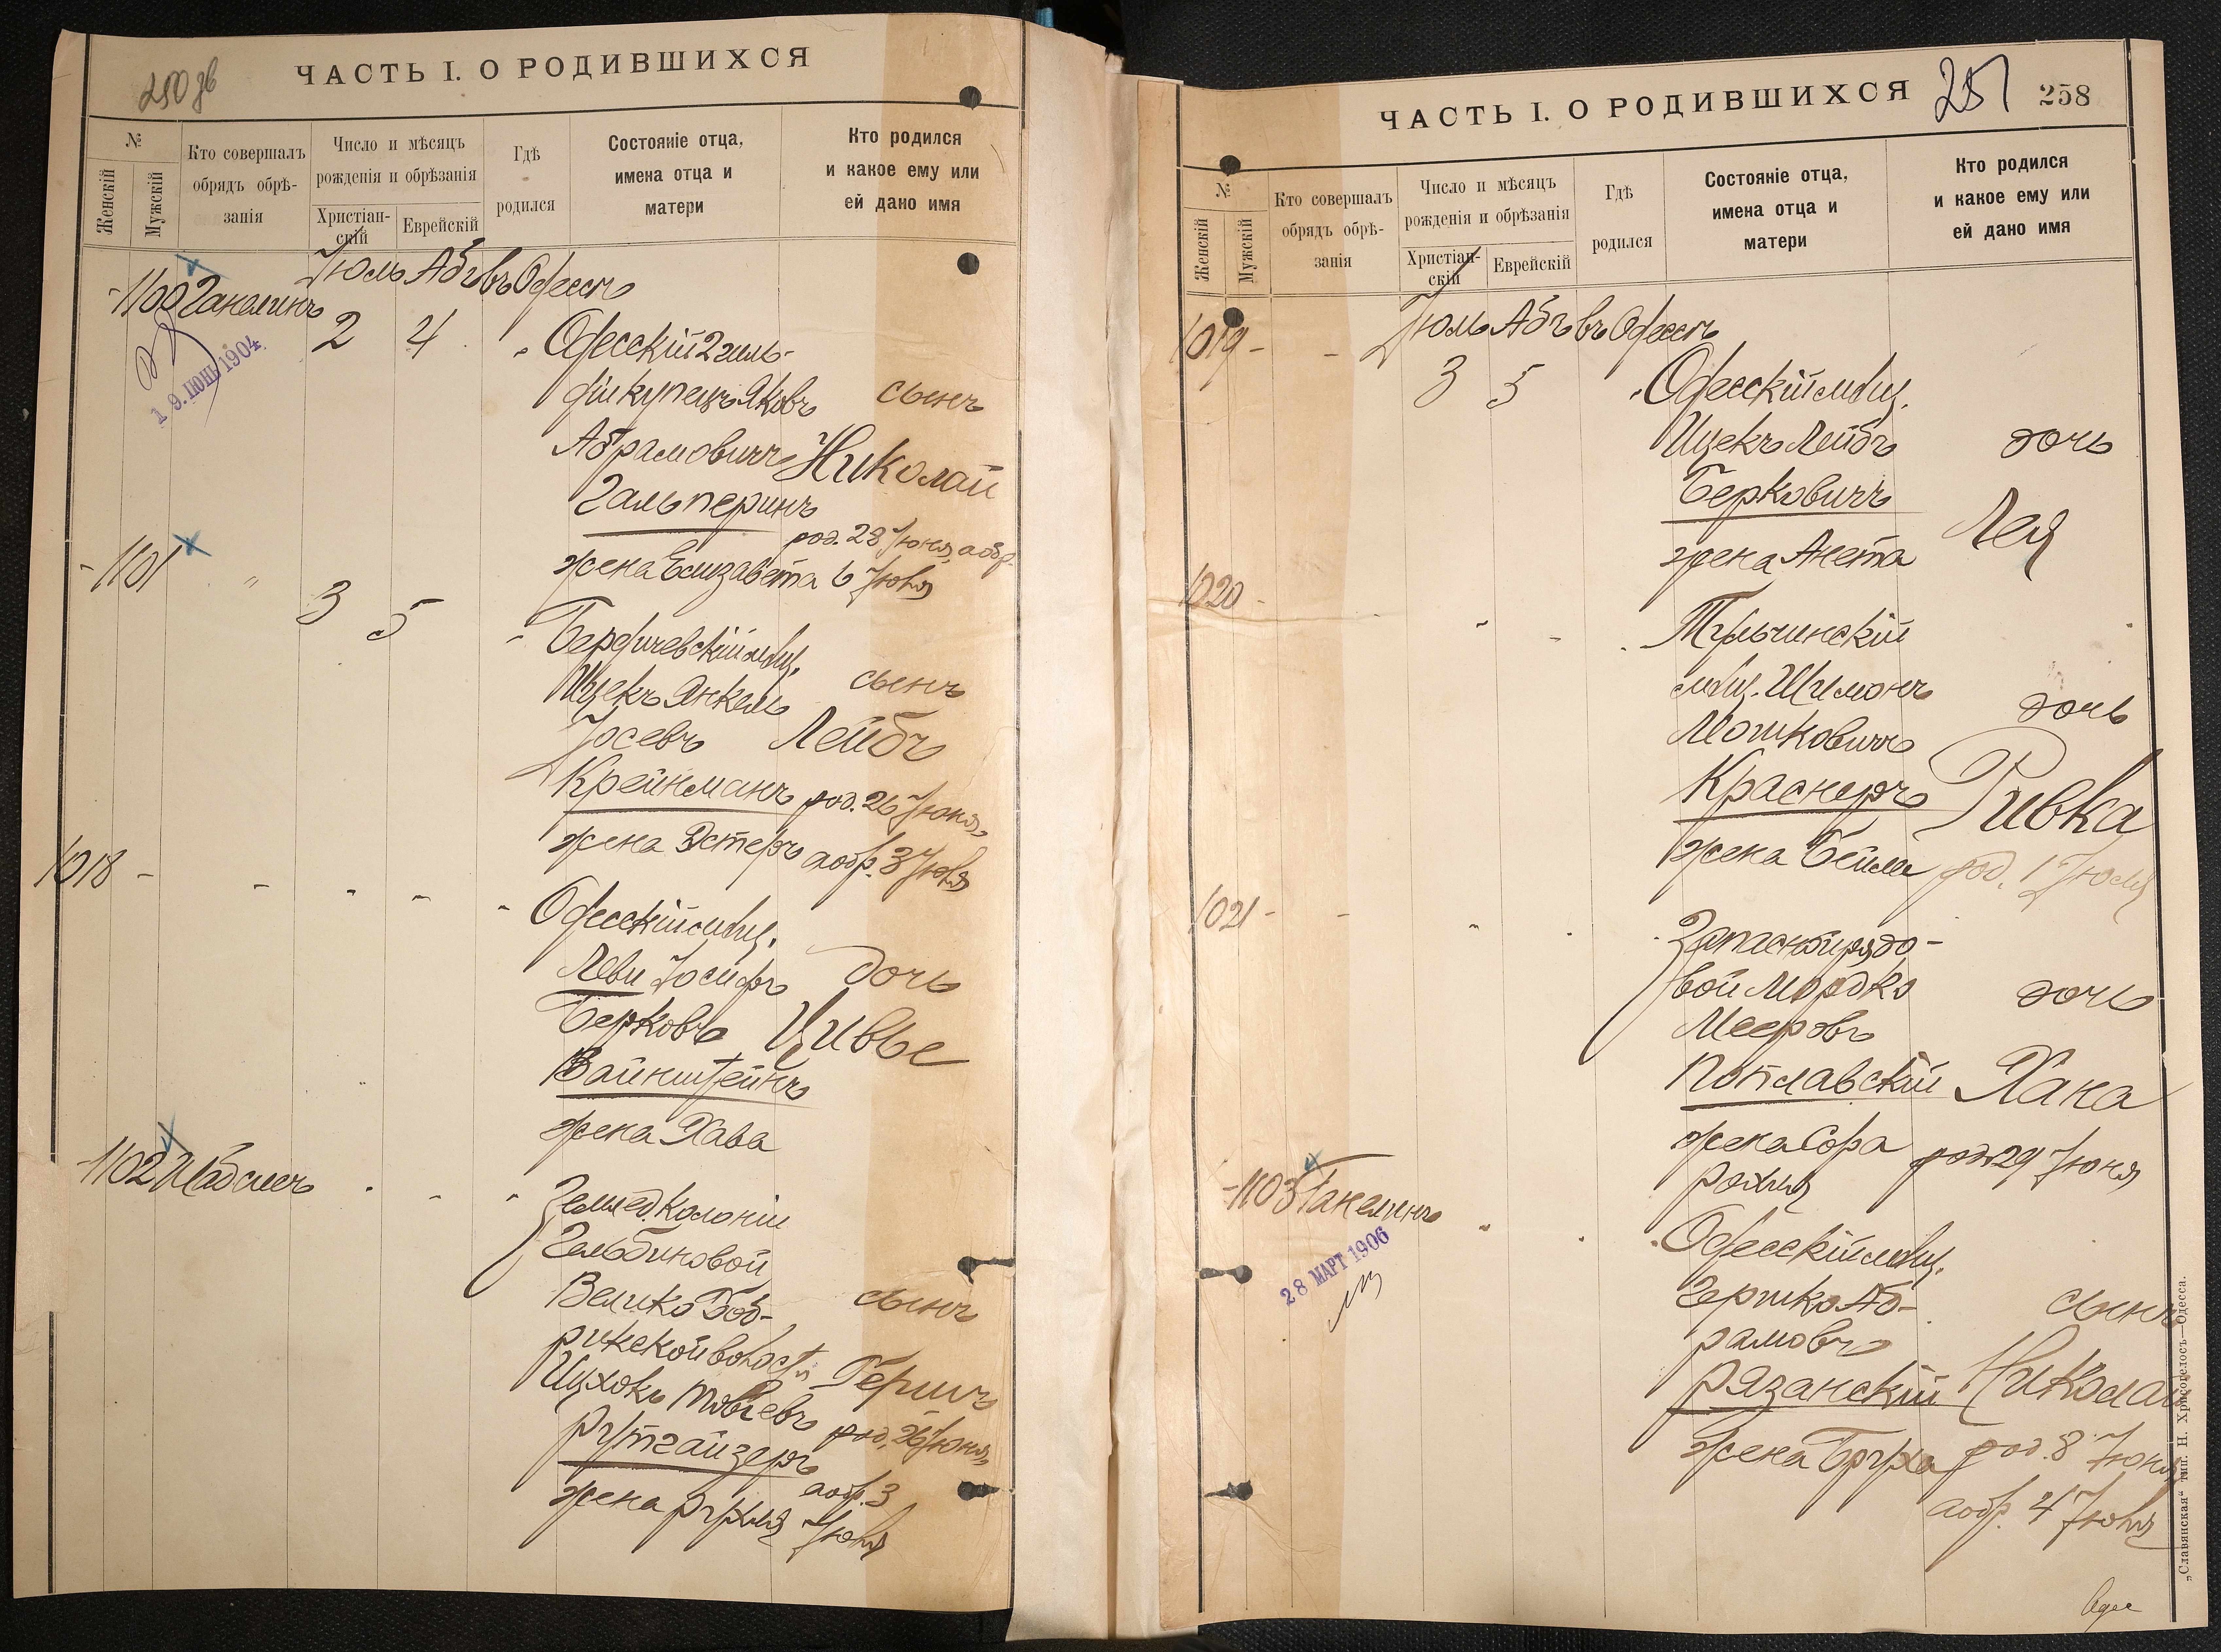 250 об
ЧАСТЬ I. О РОДИВШИХСЯ
№
Женскій
Мужскій
Кто совершалъ
обрядъ обрѣ-
занія
Число и мѣсяцъ
рожденія и обрѣзанія
Христіан-
скій
Еврейскій
Гдѣ
родился
Состояніе отца,
имена отца и
матери
Кто родился
и какое ему или
ей дано имя
Іюль Абъ въ Одессѣ
1100 Ганелинъ
19. ІЮНЬ 1904
2 4 Одесскій 2 гиль-
діи купецъ Яковъ сынъ
Абрамовичъ Николай
Гальперинъ
род. 28 Іюня, а обр.
жена Елизавета 6 Іюля
1101 " 3 5
Бердичевскій мѣщ.
Ицекъ Янкель сынъ
Іосевъ Лейбъ
Крейнманъ род. 26 Іюня,
жена Эстеръ а обр. 3 Іюля
1018 - - - - -
Одесскій мѣщ.
Леви Іосифъ дочь
Берковъ Цивье
Вайнштейнъ
жена Хава
1102 Шабслесъ
Землед. Колоніи
Гальбиновой
Велико Боб-
рижской волости сынъ
Ицхокъ Товіевъ Гершъ
род. 26 Іюня,
Рутгайзеръ
а обр. 3
жена Рухля Іюля
ЧАСТЬ I. О РОДИВШИХСЯ
251
258
№
Женскій
Мужскій
Кто совершалъ
обрядъ обрѣ-
занія
Число и мѣсяцъ
рожденія и обрѣзанія
Христіан-
скій
Еврейскій
Гдѣ
родился
Состояніе отца,
имена отца и
матери
Кто родился
и какое ему или
ей дано имя
1019 - - Іюль Абъ въ Одессѣ
3 5 Одесскій мѣщ.
Ицекъ Лейбъ дочь
Берковичъ
жена Анета Лея
1020 -
Тульчинскій
мѣщ. Шимонъ дочь
Мошковичъ
Краснеръ Ривка
жена Бейла род. 1 Іюля
1021 - -
Запасной рядо-
вой Мордко дочь
Мееровъ
Поплавскій Хана
жена Сора род. 29 Іюня
Рохля
1103 Ганелинъ
28 МАРТ 1906
Одесскій мѣщ.
Гершко Аб- сынъ
рамовъ
Рязанскій Николай
жена Бруха род. 8 Іюня
а обр. 4 Іюля
„Славянская“ тип. Н. Хрисогелосъ—Одесса.